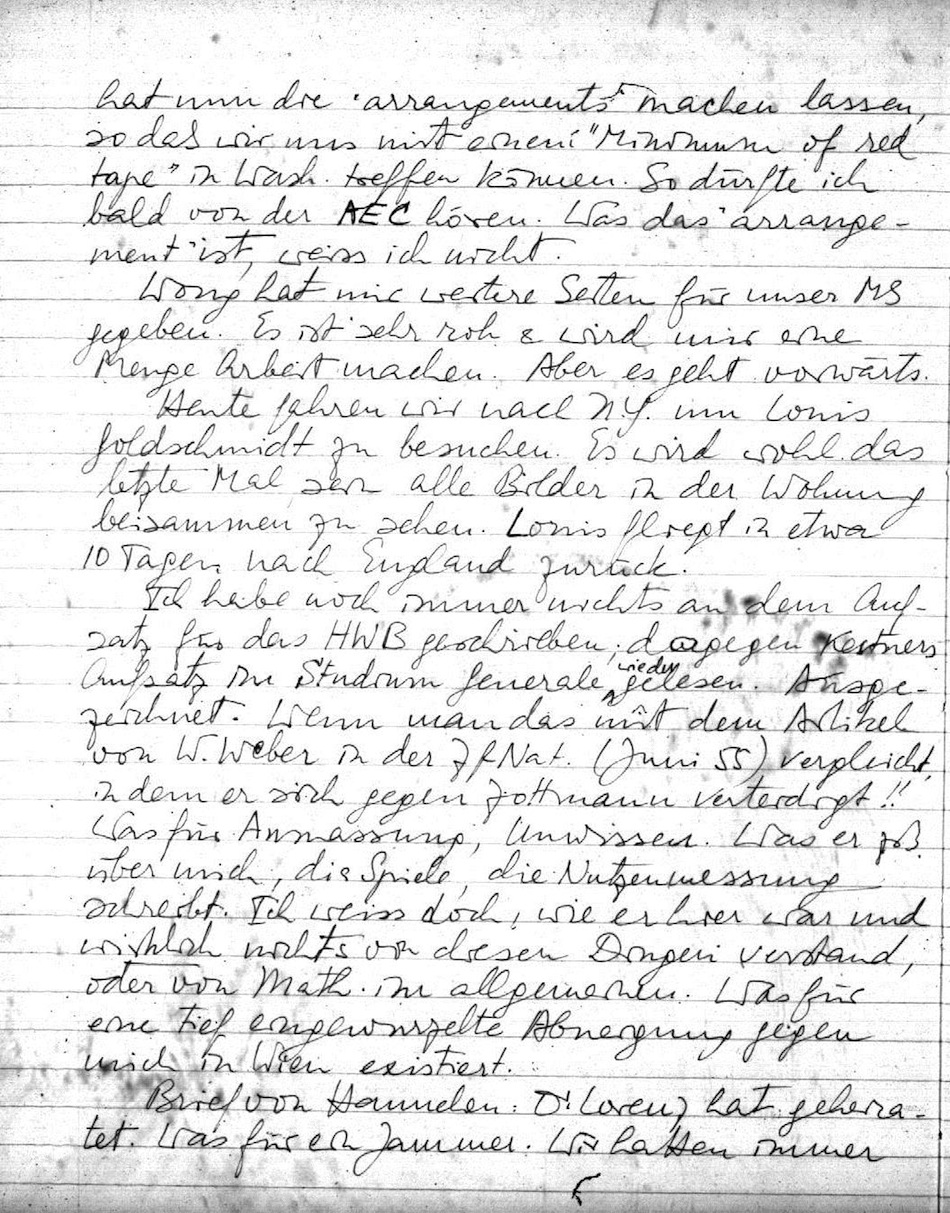 hat nun die "arrangements" machen lassen,
so dass wir uns mit einem "Minimum of red
tape" in Wash. treffen können. So dürfte ich
bald von der AEC hören. Was das "arrange-
ment" ist, weiss ich nicht.
Wong hat mir weitere Seiten für unser MS
gegeben. Es ist sehr roh & wird mir eine
Menge Arbeit machen. Aber es geht vorwärts.
Heute fahren wir nach N.Y. um Louis
Goldschmidt zu besuchen. Es wird wohl das
letzte Mal sein alle Bilder in der Wohnung
beisammen zu sehen. Louis fliegt in etwa
10 Tagen nach England zurück.
Ich habe noch immer nichts an dem Auf-
satz für das HWB geschrieben; dagegen
Aufsatz im Studium Generale wieder gelesen. Ausge-
zeichnet. Wenn man das mit dem Artikel
von W. Weber in der Z f Nat. (Juni 55) vergleicht,
in dem er sich gegen Zottmann verteidigt!!
Was für Anmassung, Unwissen. Was er zB.
über mich, die Spiele, die Nutzenmessung
schreibt. Ich weiss doch, wie er hier war und
wirklich nichts von diesen Dingen verstand,
oder von Math. im allgemeinen. Was für
eine tief eingewurzelte Abneigung gegen
mich in Wien existiert.
Brief von : Dr Lorenz hat geheira-
tet. Was für ein Jammer. Wir hatten immer